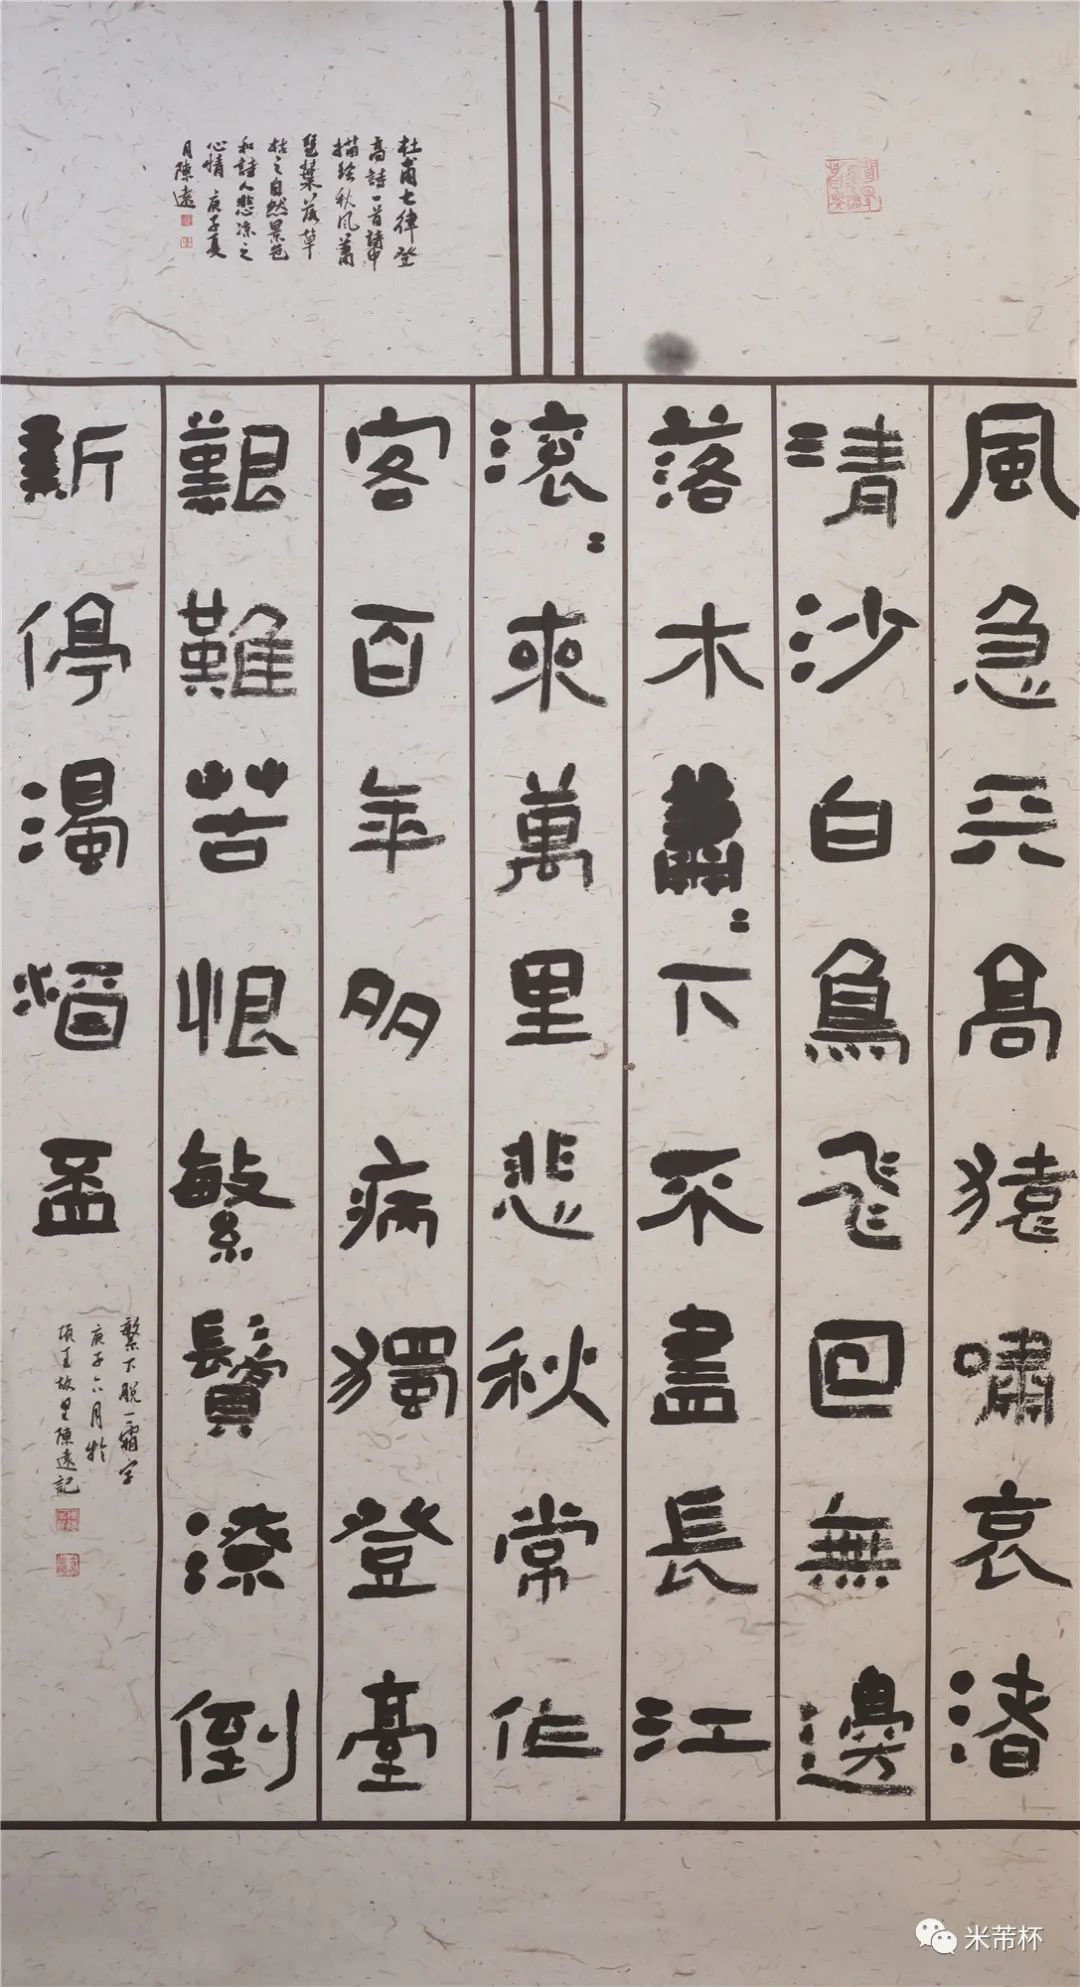 杜甫七律登
高詩一首詩中
描繪秋风蕭
瑟葉落草
枯之自然景色
和詩人悲凉之
心情 庚子夏
月陳遠
風急天高猿嘯哀渚
清沙白鳥飛回無邊
落木蕭〻下不盡長江
滾〻來萬里悲秋常作
客百年多病獨登臺
艱難苦恨繁鬢潦倒
新停濁酒盃
繁下脱一霜字
庚子六月於
項王故里陳遠記
米芾杯